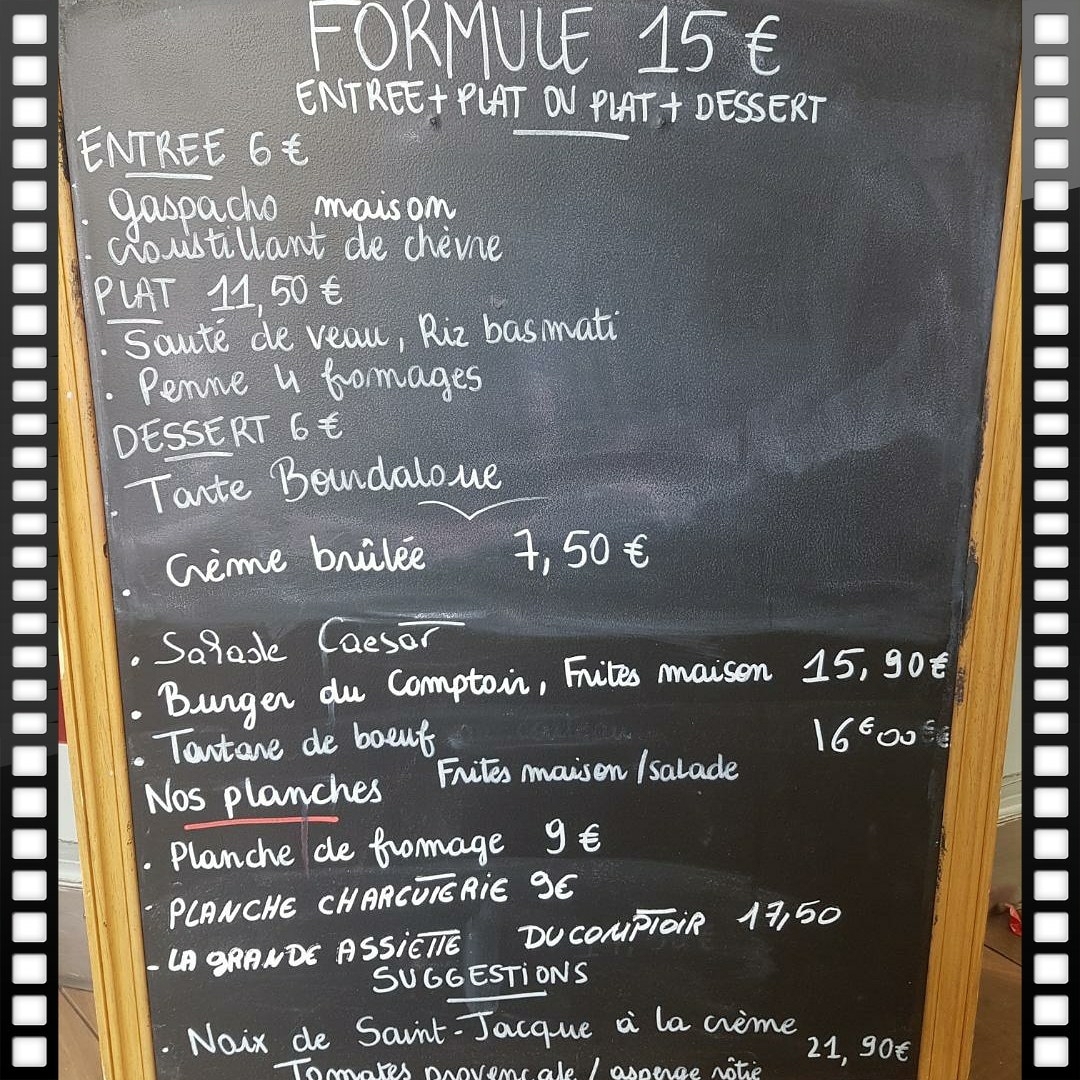 FORMULE 15 €
ENTREE + PLAT OU PLAT + DESSERT
ENTREE 6 €
. gaspacho maison
. croustillant de chèvre
PLAT 11,50 €
. Sauté de veau, Riz basmati
. Penne 4 fromages
DESSERT 6 €
. Tarte Bourdaloue
. Crème brûlée 7,50 €
. Salade Caesar
. Burger du Comptoir, Frites maison 15,90 €
. Tartare de boeuf 16€00
Frites maison / salade
Nos planches
. Planche de fromage 9 €
- PLANCHE CHARCUTERIE 9€
- LA GRANDE ASSIETTE DU COMPTOIR 17,50
SUGGESTIONS
. Noix de Saint-Jacque à la crème 21,90€
Tomates provençale / asperge rôtie